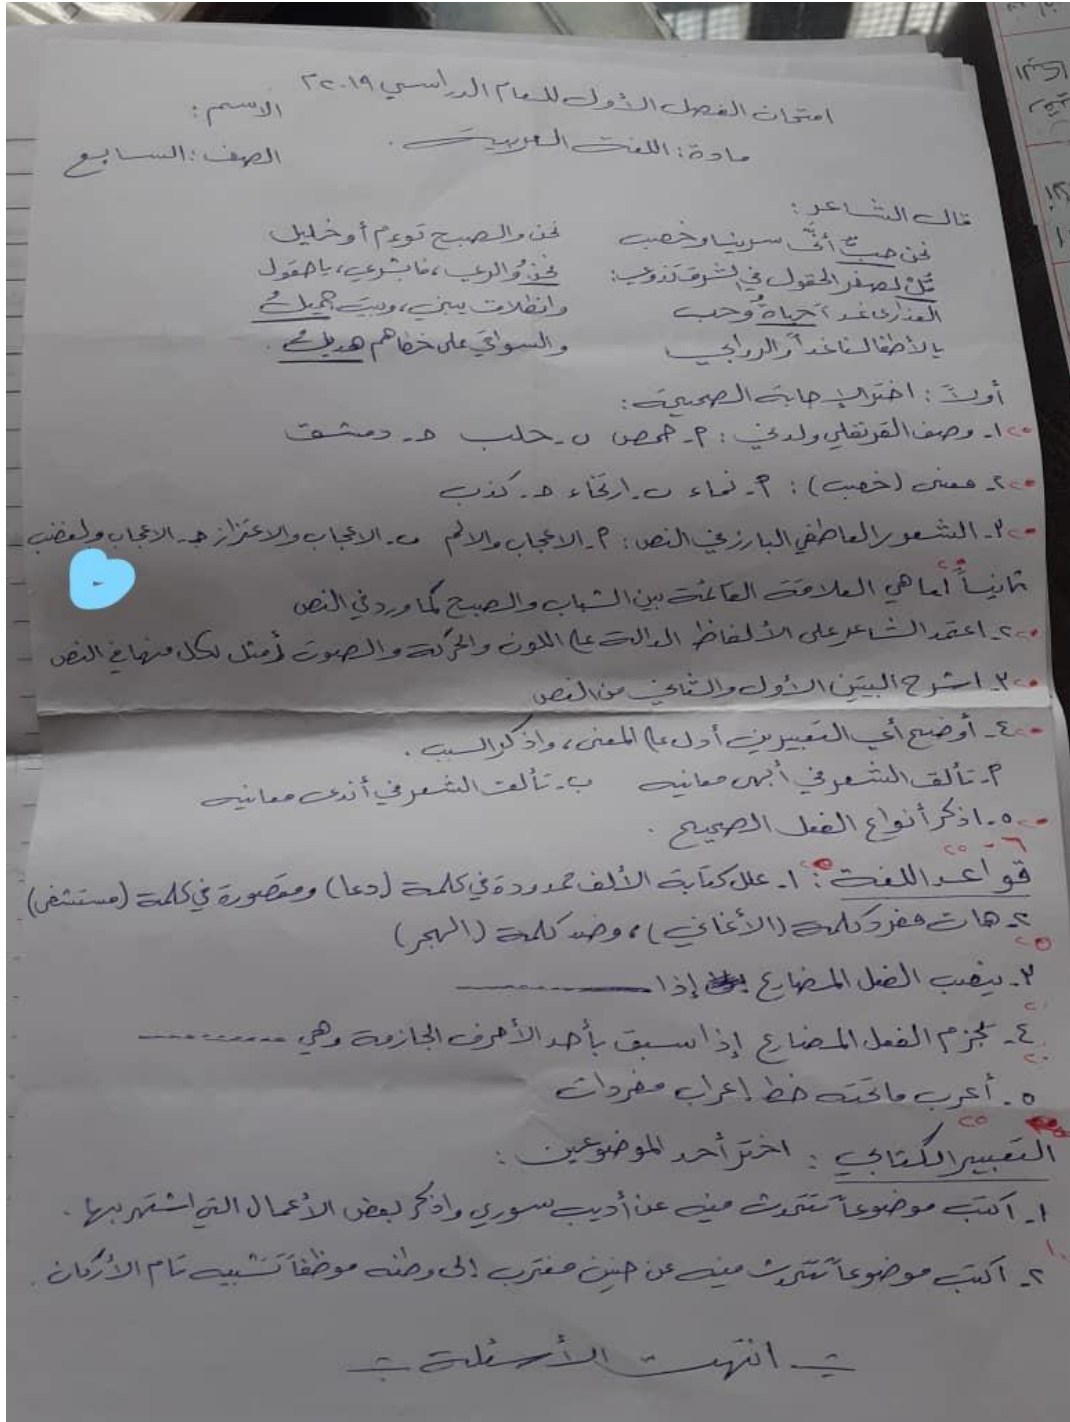 امتحان الفصل الأول للعام الدراسي ٢٠١٩
الاسم:
مادة: اللغة العربية.
الصف: السابع
قال الشاعر:
نحن حبٌّ أنَّى سرينا وخصب نحن والصبح توءم أو خليل
قُلْ لصفر الحقول في الشرق تذوي: نحن والري، فابشري، يا حقول
العذارى غداً حياةٌ وحب وانطلاقات يبني، وبيت جميلُ
يا لأطفالنا غداً والروابي والسواقي على خطاهم هديلُ.
أولاً: اختر الإجابة الصحيحة:
١- وصف القرنفلي ولد في: م- حمص ب- حلب ح- دمشق
٢- معنى (خصب): م- نماء ب- ارتخاء ح- كذب
٣- الشعور العاطفي البارز في النص: م- الاعجاب والالم ب- الاعجاب والاعتزاز ح- الاعجاب والغضب
ثانياً ١ ما هي العلاقة القائمة بين الشباب والصبح كما ورد في النص
٢- اعتمد الشاعر على الألفاظ الدالة على اللون والحركة والصوت أمثل لكل منها في النص
٣- اشرح البيتين الأول والثاني من النص
٤- أوضح أي التعبيرين أدل على المعنى، واذكر السبب.
م- تألق الشعر في أبهى معانيه ب- تألق الشعر في أندى معانيه
٥- اذكر أنواع الفعل الصحيح.
قواعد اللغة: ١- علل كتابة الألف ممدودة في كلمة (دعا) ومقصورة في كلمة (مستشفى)
٢- هات مفرد كلمة (الأغاني)، وضد كلمة (الهجر)
٣- ينصب الفعل المضارع إذا ............
٤- يجزم الفعل المضارع إذا سبق بأحد الأحرف الجازمة وهي ............
٥- أعرب ما تحته خط إعراب مفردات
التعبير الكتابي: اختر أحد الموضوعين:
١- اكتب موضوعاً تتحدث فيه عن أديب سوري واذكر بعض الأعمال التي اشتهر بها.
٢- اكتب موضوعاً تتحدث فيه عن حنين مغترب إلى وطنه موظفاً تشبيه تام الأركان.
انتهت الأسئلة